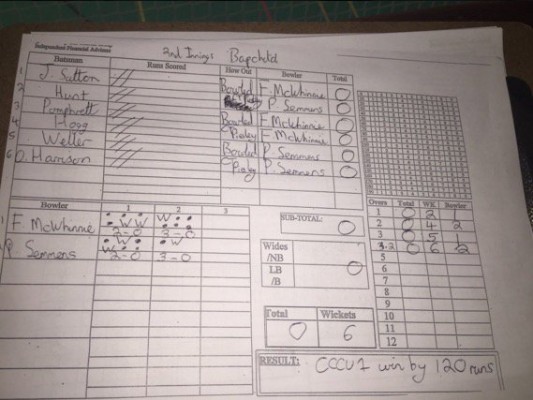 Independent Financial Advisers
2nd Innings Bapchild
Batsmen Runs Scored How Out Bowler Total
1 J. Sutton // Bowled F. McWhinnie 0
2 Hunt // P Semmens 0
3 Pomphrett // Bowled F McWhinnie 0
4 Hogg // F McWhinnie 0
5 Weller // Bowled P. Semmens 0
6 D. Harrison // P. Semmens 0
Bowler 1 2 3
1 F McWhinnie 2-0 3-0
P. Semmens 2-0 3-0
SUB-TOTAL: 0
Wides
/NB
LB
/B
0
Total Wickets
0 6
Overs Total WK Bowler
1 0 2 1
2 0 4 2
3 0 5 1
3.2 0 6 2
5
6
7
8
9
10
11
12
RESULT: CCCU1 win by 120 runs